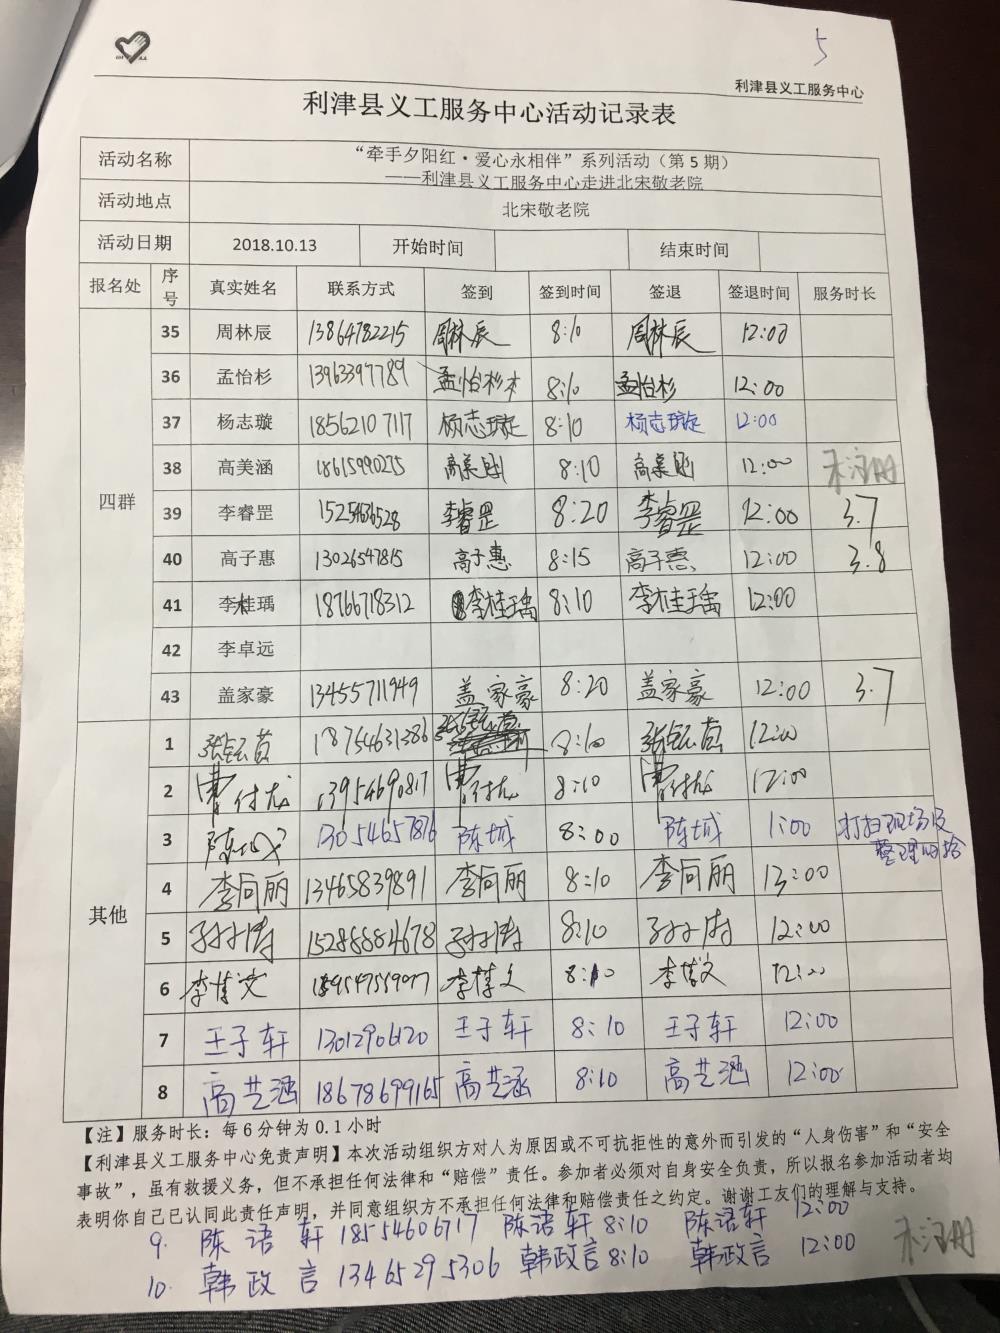 5
利津县义工服务中心
利津县义工服务中心活动记录表
活动名称 “牵手夕阳红·爱心永相伴”系列活动（第5期）
——利津县义工服务中心走进北宋敬老院
活动地点 北宋敬老院
活动日期 2018.10.13 开始时间 结束时间
报名处 序号 真实姓名 联系方式 签到 签到时间 签退 签退时间 服务时长
四群
35 周林辰 13864782215 周林辰 8:10 周林辰 12:00
36 孟怡杉 13963397789 孟怡杉 8:10 孟怡杉 12:00
37 杨志璇 18562107117 杨志璇 8:10 杨志璇 12:00
38 高美涵 18615990275 8:10 12:00 未注册
39 李睿罡 15254636528 李睿罡 8:20 李睿罡 12:00 3.7
40 高子惠 13026547815 高子惠 8:15 高子惠 12:00 3.8
41 李桂瑀 18766718312 李桂瑀 8:10 李桂瑀 12:00
42 李卓远
43 盖家豪 13455711949 盖家豪 8:20 盖家豪 12:00 3.7
其他
1 18754631386 8:10 12:00
2 曹付龙 曹付龙 8:10 曹付龙 12:00
3 陈城 13054657876 陈城 8:00 陈城 1:00 打扫现场及
整理
4 李向丽 13465839891 李向丽 8:10 李向丽 13:00
5 15288884678 8:10 12:00
6 李博文 李博文 8:10 李博文 12:00
7 王子轩 13012906120 王子轩 8:10 王子轩 12:00
8 高艺涵 18678699165 高艺涵 8:10 高艺涵 12:00
【注】服务时长：每6分钟为0.1小时
【利津县义工服务中心免责声明】本次活动组织方对人为原因或不可抗拒性的意外而引发的“人身伤害”和“安全
事故”，虽有救援义务，但不承担任何法律和“赔偿”责任。参加者必须对自身安全负责，所以报名参加活动者均
表明你自己已认同此责任声明，并同意组织方不承担任何法律和赔偿责任之约定。谢谢工友们的理解与支持。
9. 陈语轩 18554606717 陈语轩 8:10 陈语轩 12:00
10. 韩政言 13465295306 韩政言 8:10 韩政言 12:00 未注册